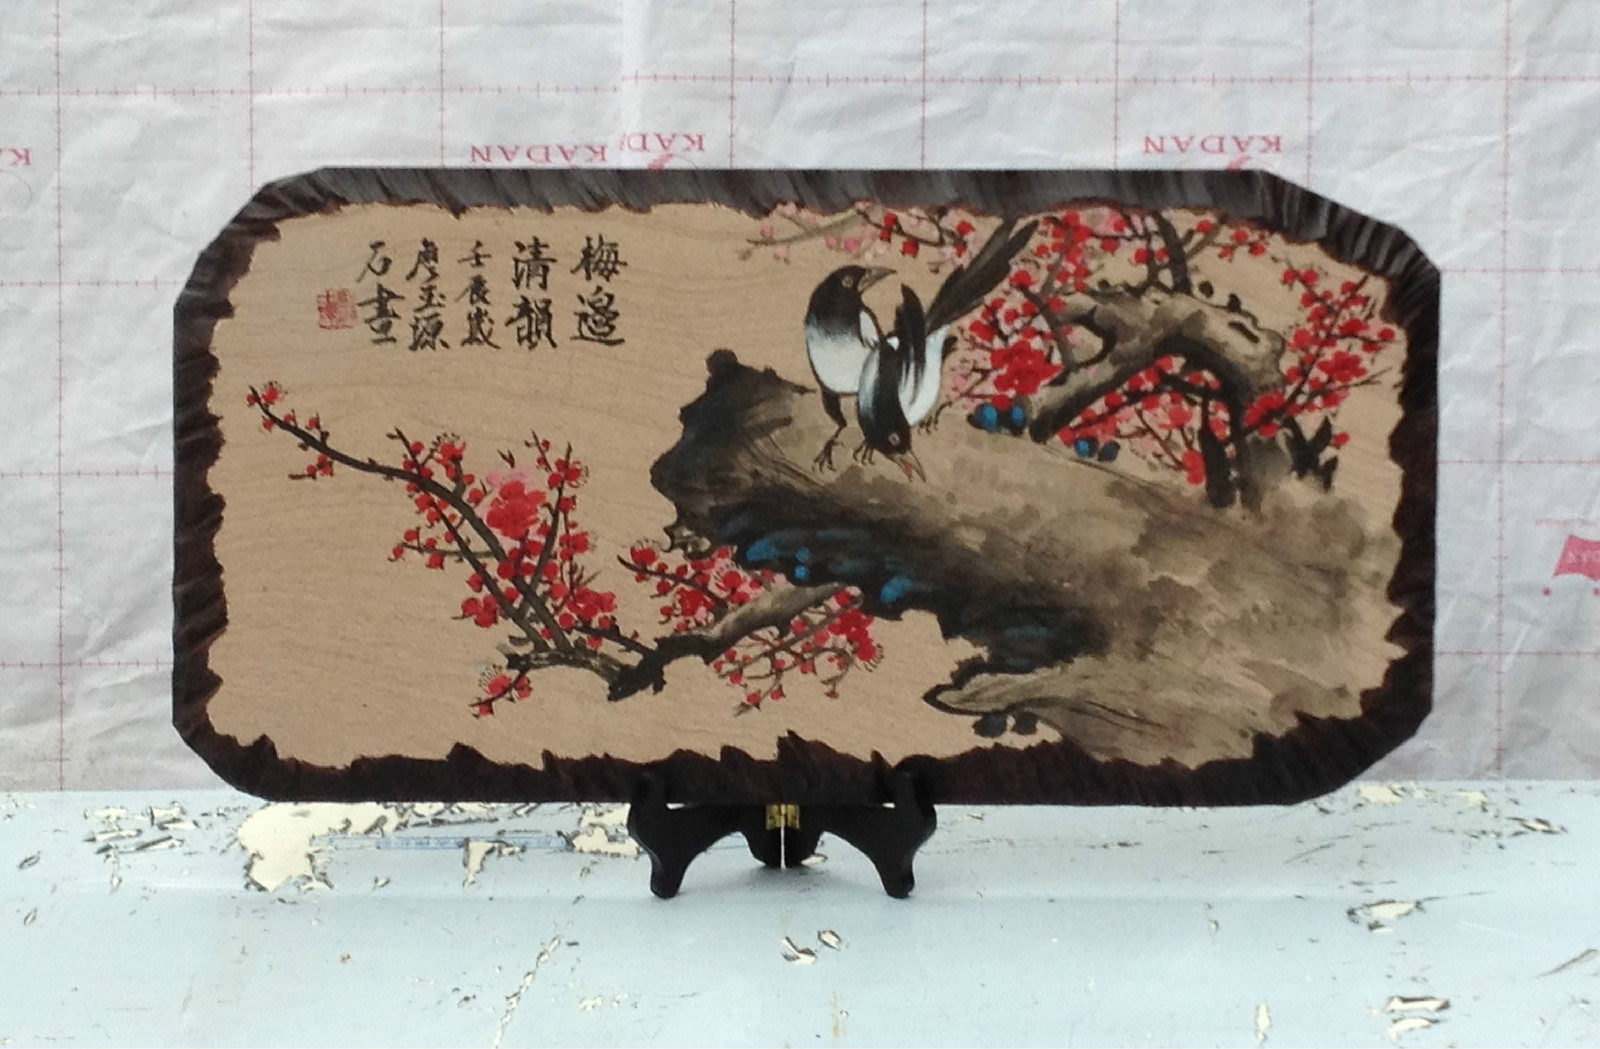 梅邊
清韻
壬辰歲
唐玉源
石畫
KADAN
KADAN
KADAN